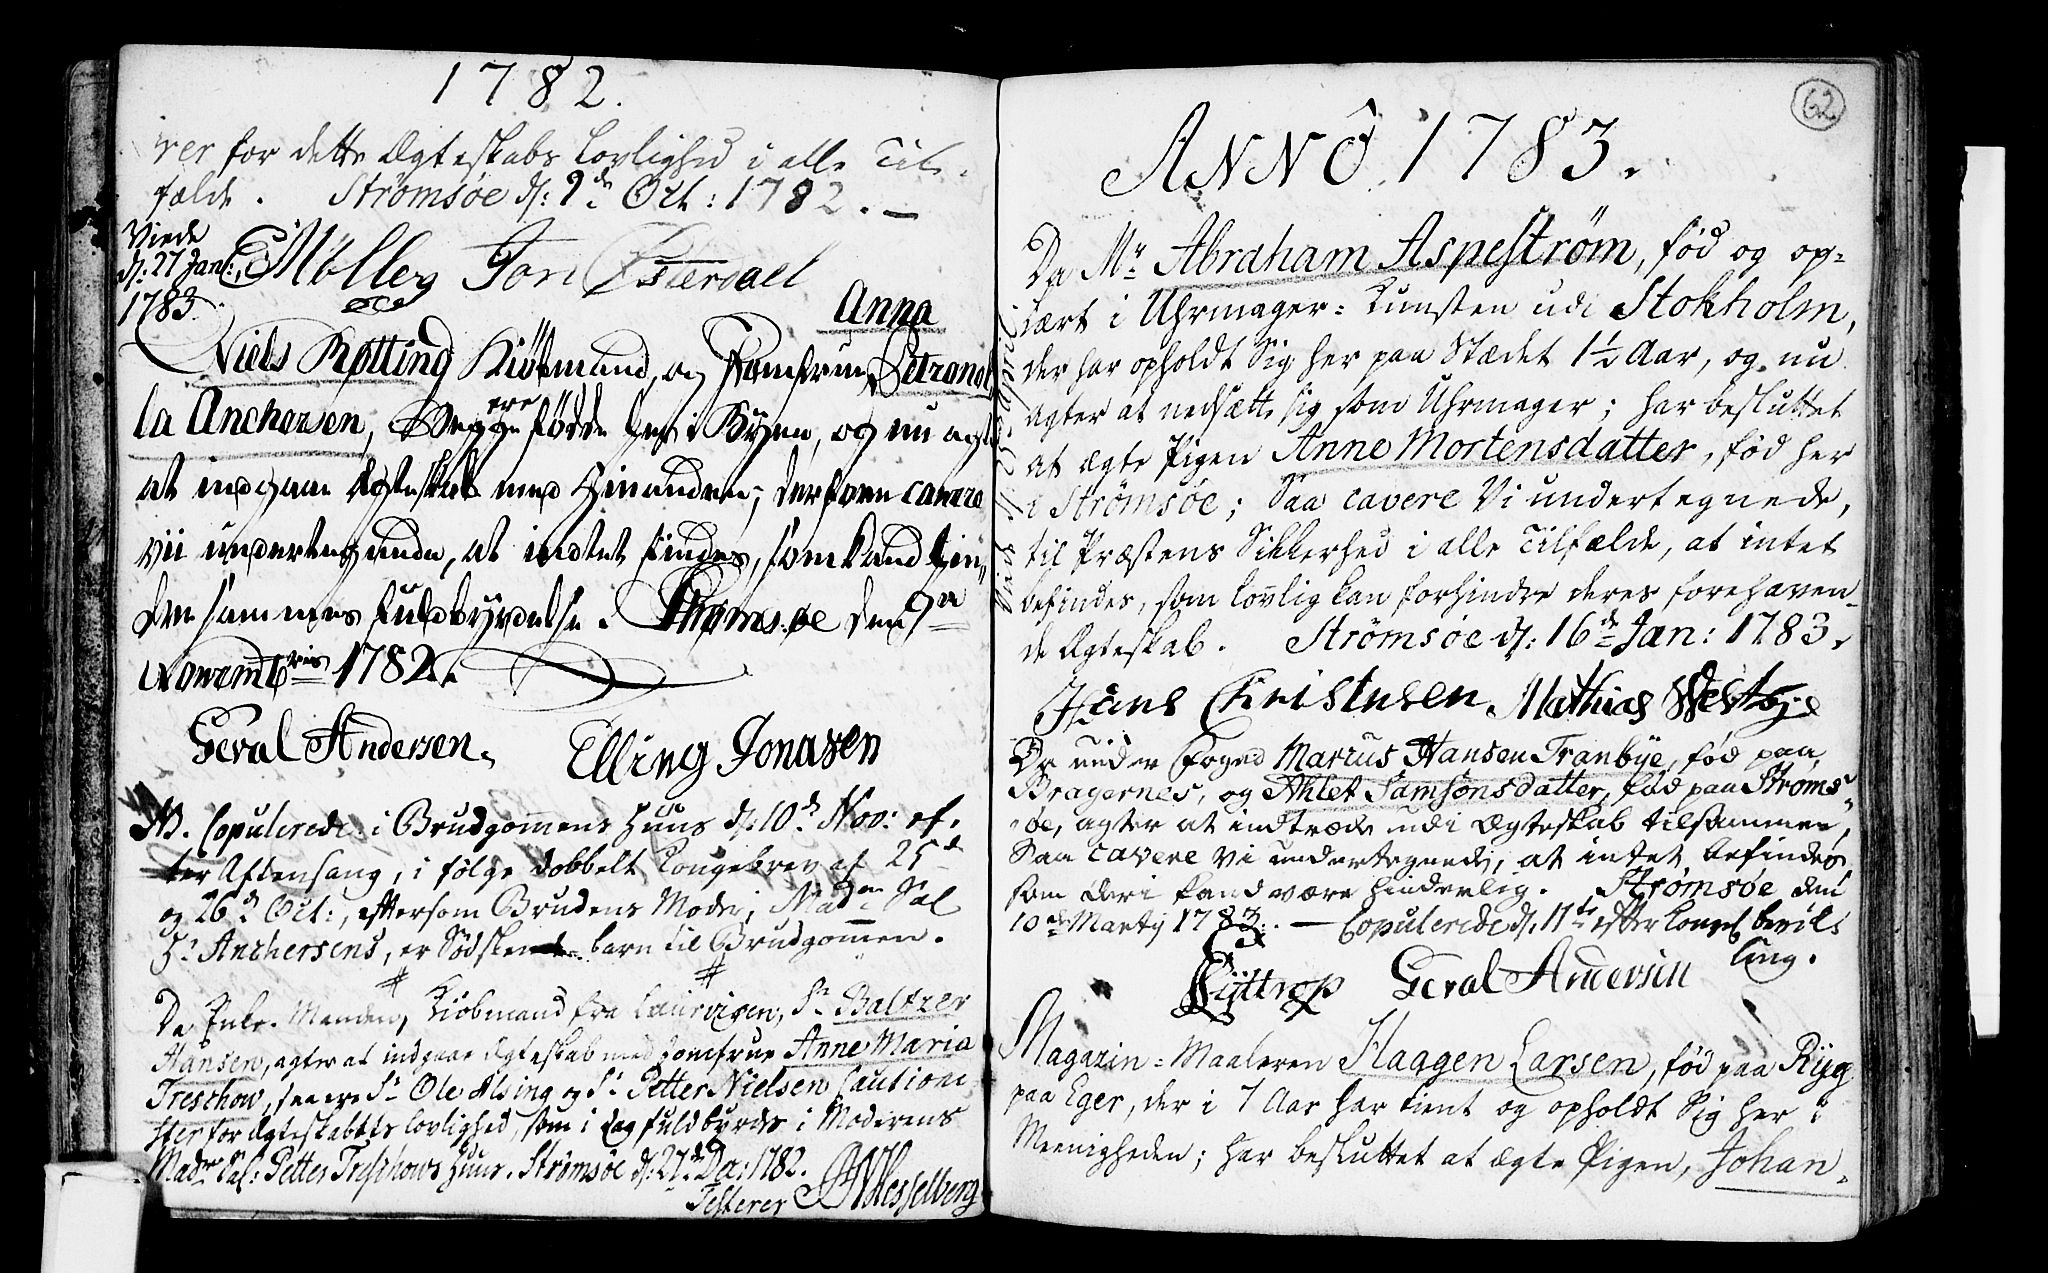 1782.
rer for dette Ægteskabs Lovlighed i alle Til-
fælde. Strømsøe d: 9de Oct: 1782. —
Viede
d: 27 Jan:
1783.
Møller Jon Østerdael
Anna
Niels Røtting Kiøbmand, og Jomfrue Petronel
la Anchersen, Begge ere fødde her i Byen, og nu agte
at indgaae Ægteskab med hinanden; derfore cavere
vii undertegnede, at indtet findes, som kand hin„
dre sammes fuldbyrdelse. Strømsøe den 7de
Novembris 1782.
Geral Andersen. Elling Jonasen
NB. Copulerede i Brudgommens Huus d: 10de Nov: ef-
ter Aftensang, i følge dobbelt Kongebrev af 25de
og 26de Oct:, eftersom Brudens Moder, Madme Sal
Sr Anchersens, er Sødskende-barn til Brudgommen.
Da Enke-Manden, Kiøbmand fra Laurvigen, Sr Baltzer
Hansen, agter at indgaae Ægteskab med Jomfrue Anne Maria
Treschow, saa ere Sr Ole Alsing og Sr Petter Nielsen Cautioni
ster for Ægteskabets Lovlighed, som i dag fuldbyrdes i Moderens
Madme Sal: Petter Treschows Huus. Strømsøe d: 27de Dec: 1782.
Testerer Wesselberg
62
ANNO 1783.
Da Mr Abraham Aspeström, fød og op-
lært i Uhrmager-Kunsten udi Stokholm,
der har opholdt Sig her paa Stædet 1½ Aar, og nu
agter at nedsætte sig som Uhrmager; har besluttet
at ægte Pigen Anne Mortensdatter, fød her
i Strømsøe; Saa cavere Vi undertegnede,
til Præstens Sikkerhed i alle Tilfælde, at intet
befindes, som lovlig kan forhindre deres forehaven-
de Ægteskab. Strømsøe d: 16de Jan: 1783.
Hans Christensen Mathias Westbye
Da under Foged Marcus Hansen Tranbye, fød paa
Bragernes, og Ahlet Samsonsdatter, fød paa Strøms„
øe, agter at indtræde udi Ægteskab tilsammen,
Saa cavere Vi undertegnede, at intet befindes
som deri kand være hinderlig. Strømsøe den
10de Martij 1783. — Copulerede d. 11te efter Kongel bevil-
ling.
Ryttrop Geral Andersen
Magazin-Maaleren Haagen Larsen, fød paa Ryg
paa Eger, der i 7 Aar har tient og opholdt Sig her i
Meenigheden; har besluttet at ægte Pigen, Johan-